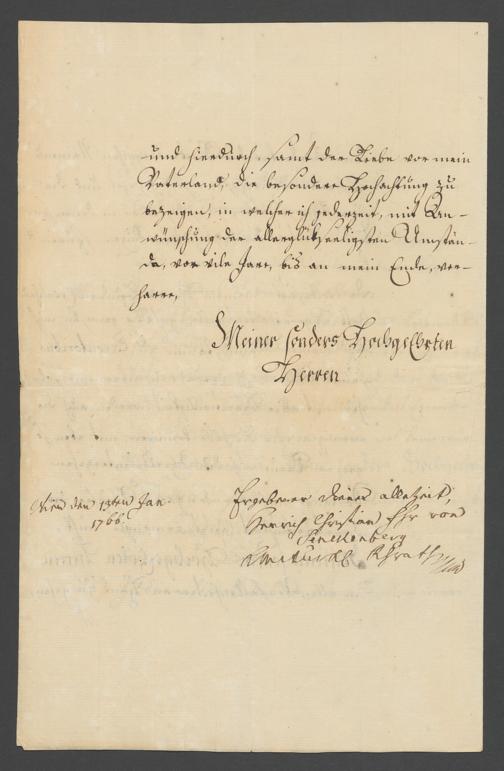 und hierdurch, samt der Liebe vor mein
Vaterland, die besondere Hochachtung zu
bezeigen, in welcher ich jederzeit, mit An-
wünschung der allerglükseeligsten Umstän-
de, vor vile Jare, bis an mein Ende, ver-
harre,
Meiner sonders Hochgeehrten
Herren
Wien den 13ten Jan.
1766.
Ergebener Diener allezeit,
Henrich Christian Fhr von
Senckenberg